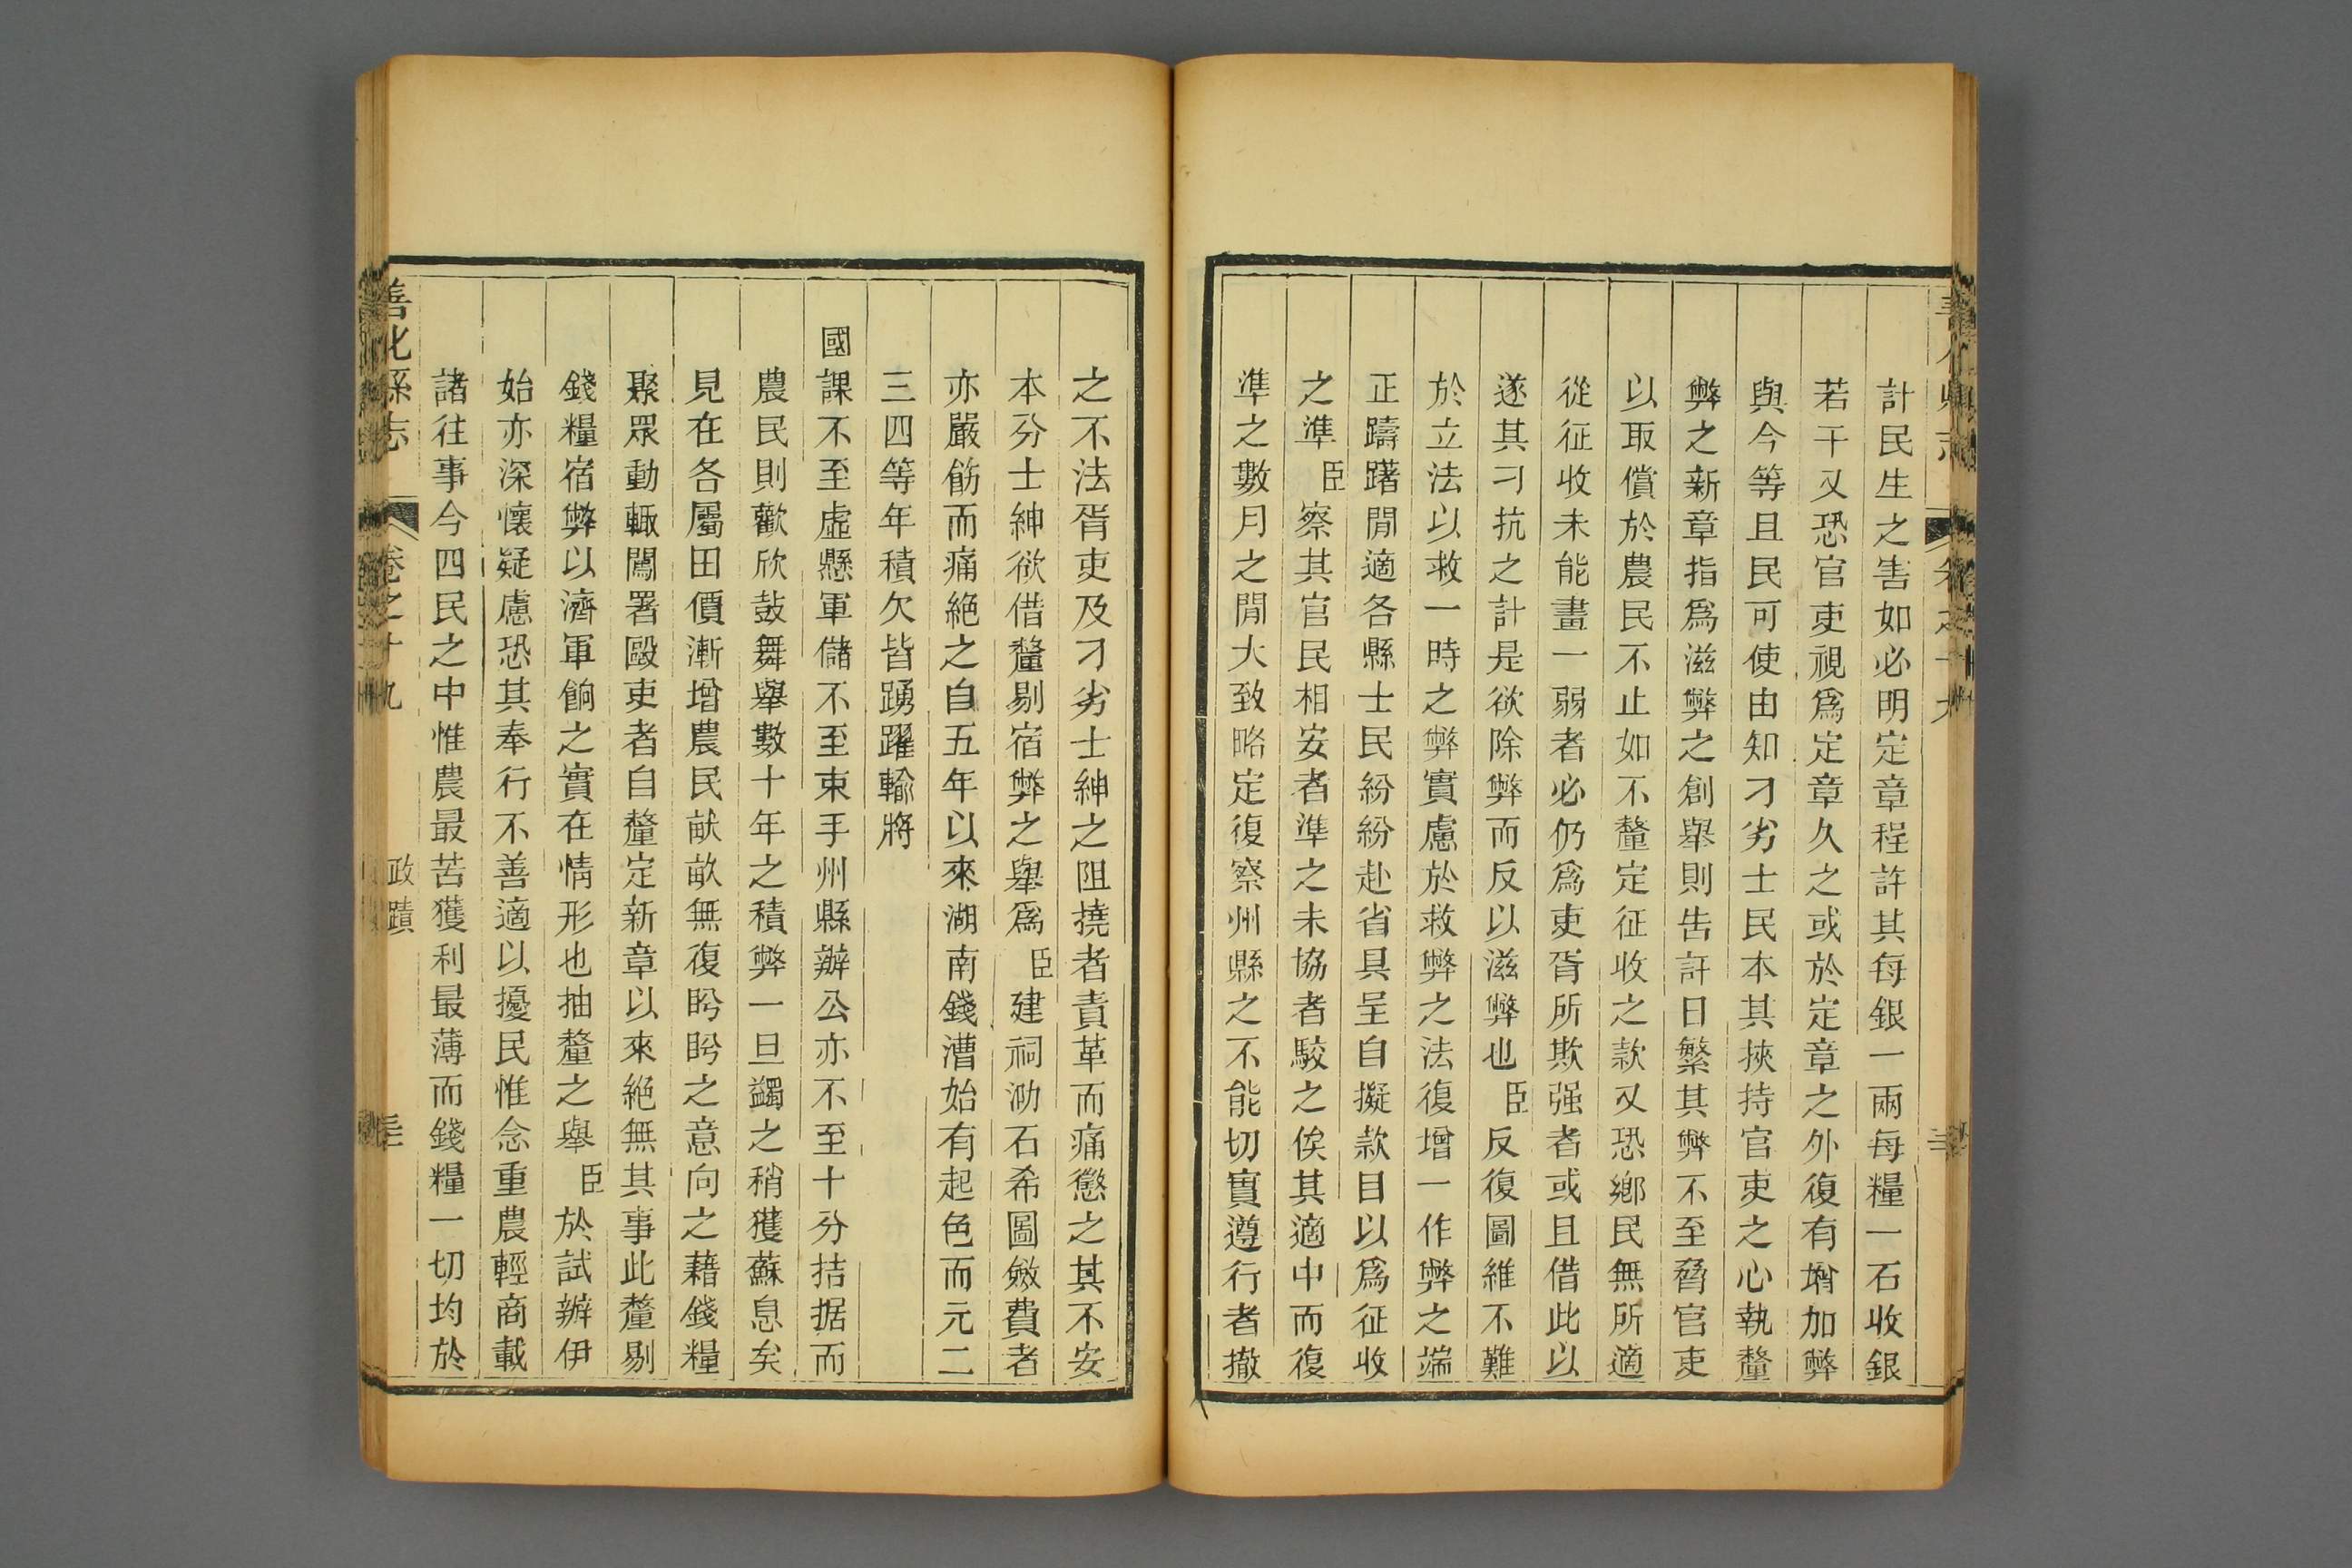 計民生之害如必明定章程許其每銀一兩每糧一石收銀
若干又恐官吏視爲定章久之或於定章之外復有增加弊
與今等且民可使由知刁劣士民本其挾持官吏之心執釐
弊之新章指爲滋弊之創舉則告訐日繁其弊不至脅官吏
以取償於農民不止如不釐定征收之款又恐鄉民無所適
從征收未能畫一弱者必仍爲吏胥所欺强者或且借此以
遂其刁抗之計是欲除弊而反以滋弊也臣反復圖維不難
於立法以救一時之弊實慮於救弊之法復增一作弊之端
正躊躇閒適各縣士民紛紛赴省具呈自擬款目以爲征收
之準臣察其官民相安者準之未協者駮之俟其適中而復
準之數月之閒大致略定復察州縣之不能切實遵行者撤
之不法胥吏及刁劣士紳之阻撓者責革而痛懲之其不安
本分士紳欲借釐剔宿弊之舉爲臣建祠泐石希圖斂費者
亦嚴飭而痛絕之自五年以來湖南錢漕始有起色而元二
三四等年積欠皆踴躍輸將
國課不至虛懸軍儲不至束手州縣辦公亦不至十分拮据而
農民則歡欣鼓舞舉數十年之積弊一旦蠲之稍獲蘇息矣
見在各屬田價漸增農民畎畝無復盻盻之意向之藉錢糧
聚眾動輒鬧署毆吏者自釐定新章以來絕無其事此釐剔
錢糧宿弊以濟軍餉之實在情形也抽釐之舉臣於試辦伊
始亦深懷疑慮恐其奉行不善適以擾民惟念重農輕商載
諸往事今四民之中惟農最苦獲利最薄而錢糧一切均於
善化縣志
卷之十九
政蹟